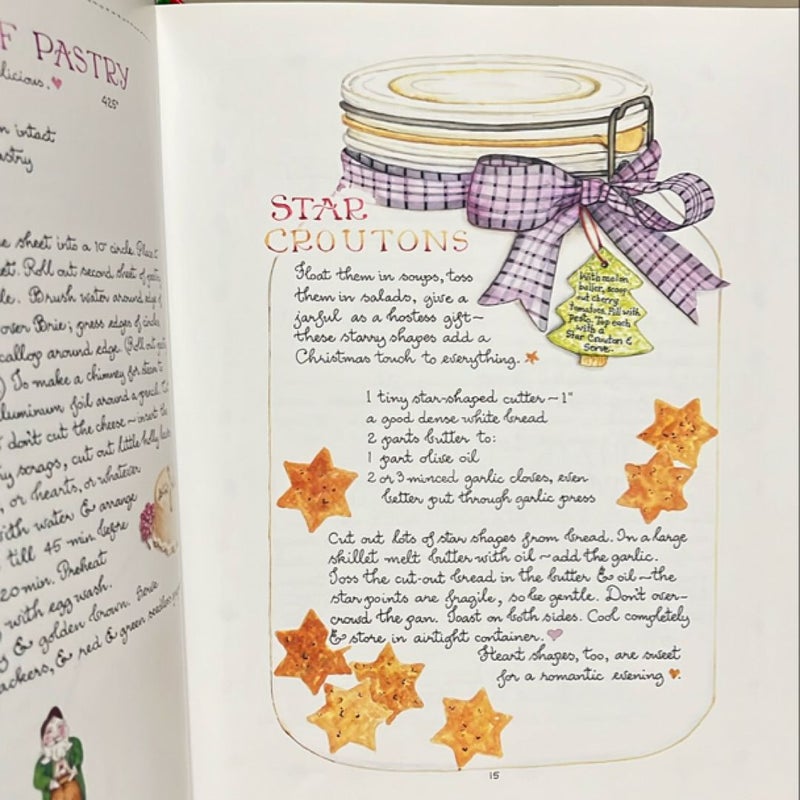 F PASTRY
licious.
425°
n intact
astry
e sheet into a 10" circle. Place
et. Roll out second sheet of pastry
le. Brush water around edge of
over Brie; press edges of circles
callop around edge. (Roll out
) To make a chimney for steam to
luminum foil around a pencil.
don't cut the cheese – insert the
y scraps, cut out little holly leaves
, or hearts, or whatever
with water & arrange
till 45 min. before
20 min. Preheat
with egg wash.
& golden brown. Serve
ackers, & red & green seedless
STAR
CROUTONS
Float them in soups, toss
them in salads, give a
jarful as a hostess gift –
these starry shapes add a
Christmas touch to everything.
With melon
baller, scoop
out cherry
tomatoes. Fill with
pesto. Top each
with a
Star Crouton &
Serve.
1 tiny star-shaped cutter ~ 1"
a good dense white bread
2 parts butter to:
1 part olive oil
2 or 3 minced garlic cloves, even
better put through garlic press
Cut out lots of star shapes from bread. In a large
skillet melt butter with oil ~ add the garlic.
Toss the cut-out bread in the butter & oil ~ the
star points are fragile, so be gentle. Don't over-
crowd the pan. Toast on both sides. Cool completely
& store in airtight container.
Heart shapes, too, are sweet
for a romantic evening
15